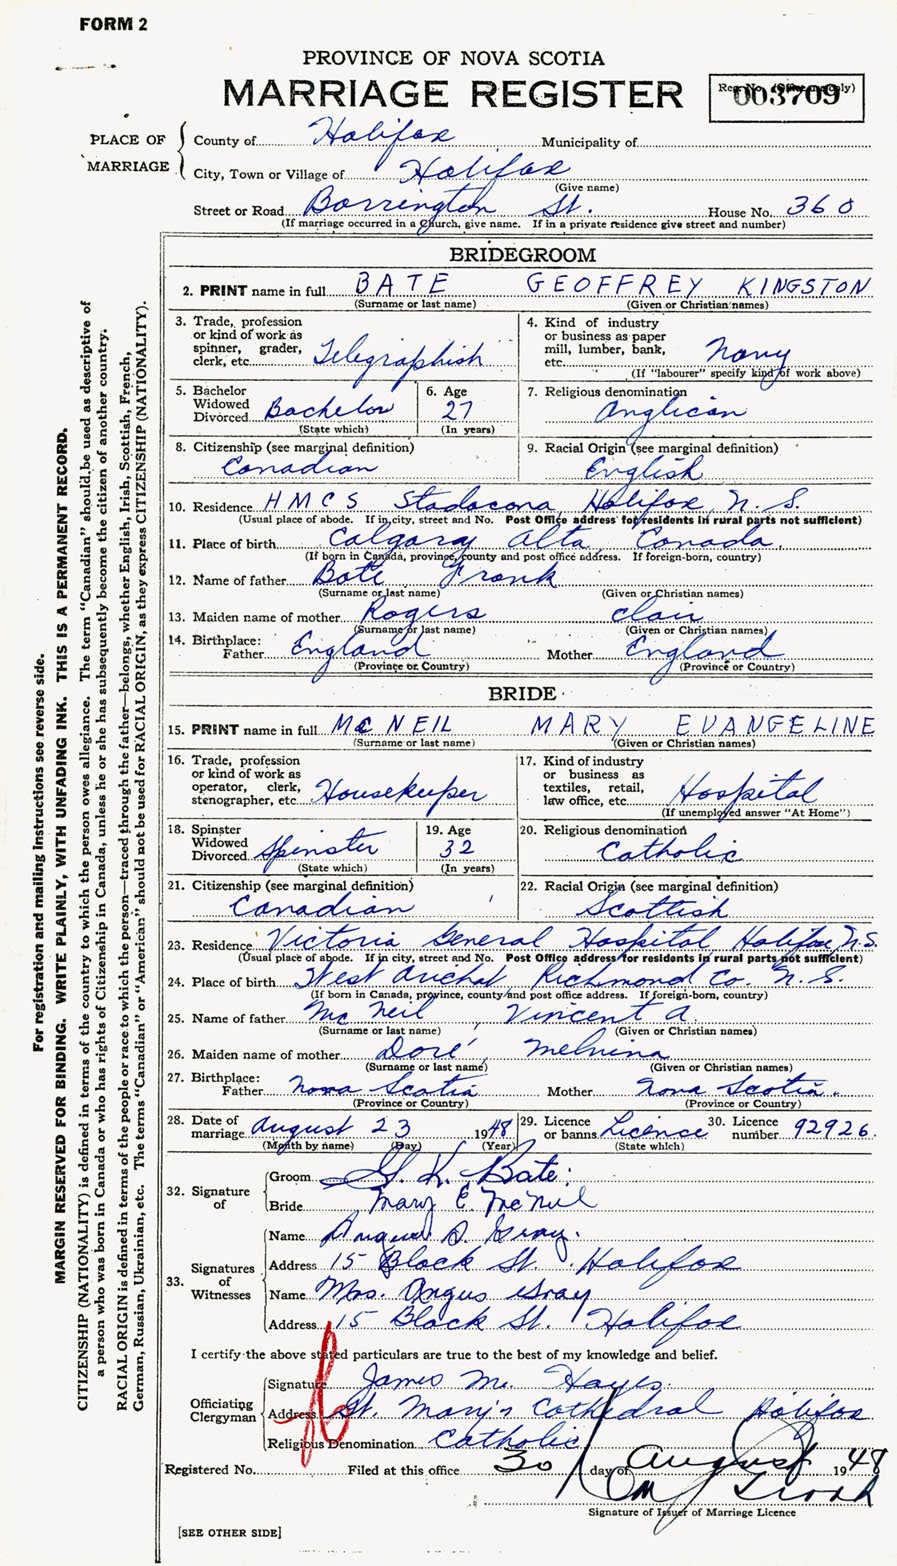 FORM 2
PROVINCE OF NOVA SCOTIA
MARRIAGE REGISTER
Reg. No. (Office use only)
003709
PLACE OF MARRIAGE
County of Halifax Municipality of
City, Town or Village of Halifax
(Give name)
Street or Road Barrington St. House No. 360
(If marriage occurred in a Church, give name. If in a private residence give street and number)
BRIDEGROOM
2. PRINT name in full BATE GEOFFREY KINGSTON
(Surname or last name) (Given or Christian names)
3. Trade, profession or kind of work as spinner, grader, clerk, etc. Telegraphist
4. Kind of industry or business as paper mill, lumber, bank, etc. Navy
(If "labourer" specify kind of work above)
5. Bachelor Widowed Divorced Bachelor
(State which)
6. Age 27
(In years)
7. Religious denomination Anglican
8. Citizenship (see marginal definition) Canadian
9. Racial Origin (see marginal definition) English
10. Residence HMCS Stadacona, Halifax, N.S.
(Usual place of abode. If in city, street and No. Post Office address for residents in rural parts not sufficient)
11. Place of birth Calgary Alta Canada.
(If born in Canada, province, county and post office address. If foreign-born, country)
12. Name of father Bate Frank
(Surname or last name) (Given or Christian names)
13. Maiden name of mother Rogers Clair
(Surname or last name) (Given or Christian names)
14. Birthplace: Father England Mother England
(Province or Country) (Province or Country)
BRIDE
15. PRINT name in full McNEIL MARY EVANGELINE
(Surname or last name) (Given or Christian names)
16. Trade, profession or kind of work as operator, clerk, stenographer, etc. Housekeeper
17. Kind of industry or business as textiles, retail, law office, etc. Hospital
(If unemployed answer "At Home")
18. Spinster Widowed Divorced Spinster
(State which)
19. Age 32
(In years)
20. Religious denomination Catholic
21. Citizenship (see marginal definition) Canadian
22. Racial Origin (see marginal definition) Scottish
23. Residence Victoria General Hospital Halifax, N.S.
(Usual place of abode. If in city, street and No. Post Office address for residents in rural parts not sufficient)
24. Place of birth West Arichat Richmond Co. N.S.
(If born in Canada, province, county and post office address. If foreign-born, country)
25. Name of father McNeil, Vincent A.
(Surname or last name) (Given or Christian names)
26. Maiden name of mother Doré, Melvina
(Surname or last name) (Given or Christian names)
27. Birthplace: Father Nova Scotia Mother Nova Scotia.
(Province or Country) (Province or Country)
28. Date of marriage August 23 1948
(Month by name) (Day) (Year)
29. Licence or banns Licence
(State which)
30. Licence number 92926.
32. Signature of
Groom G. K. Bate.
Bride Mary E. McNeil
33. Signatures of Witnesses
Name Angus D. Gray.
Address 15 Black St. Halifax
Name Mrs. Angus Gray
Address 15 Black St. Halifax
I certify the above stated particulars are true to the best of my knowledge and belief.
Officiating Clergyman
Signature James M. Hayes.
Address St. Mary's Cathedral Halifax
Religious Denomination Catholic
Registered No. Filed at this office 30 day of August 1948
Signature of Issuer of Marriage Licence
[SEE OTHER SIDE]
For registration and mailing instructions see reverse side.
MARGIN RESERVED FOR BINDING. WRITE PLAINLY, WITH UNFADING INK. THIS IS A PERMANENT RECORD.
CITIZENSHIP (NATIONALITY) is defined in terms of the country to which the person owes allegiance. The term "Canadian" should be used as descriptive of
a person who was born in Canada or who has rights of Citizenship in Canada, unless he or she has subsequently become the citizen of another country.
RACIAL ORIGIN is defined in terms of the people or race to which the person—traced through the father—belongs, whether English, Irish, Scottish, French,
German, Russian, Ukrainian, etc. The terms "Canadian" or "American" should not be used for RACIAL ORIGIN, as they express CITIZENSHIP (NATIONALITY).